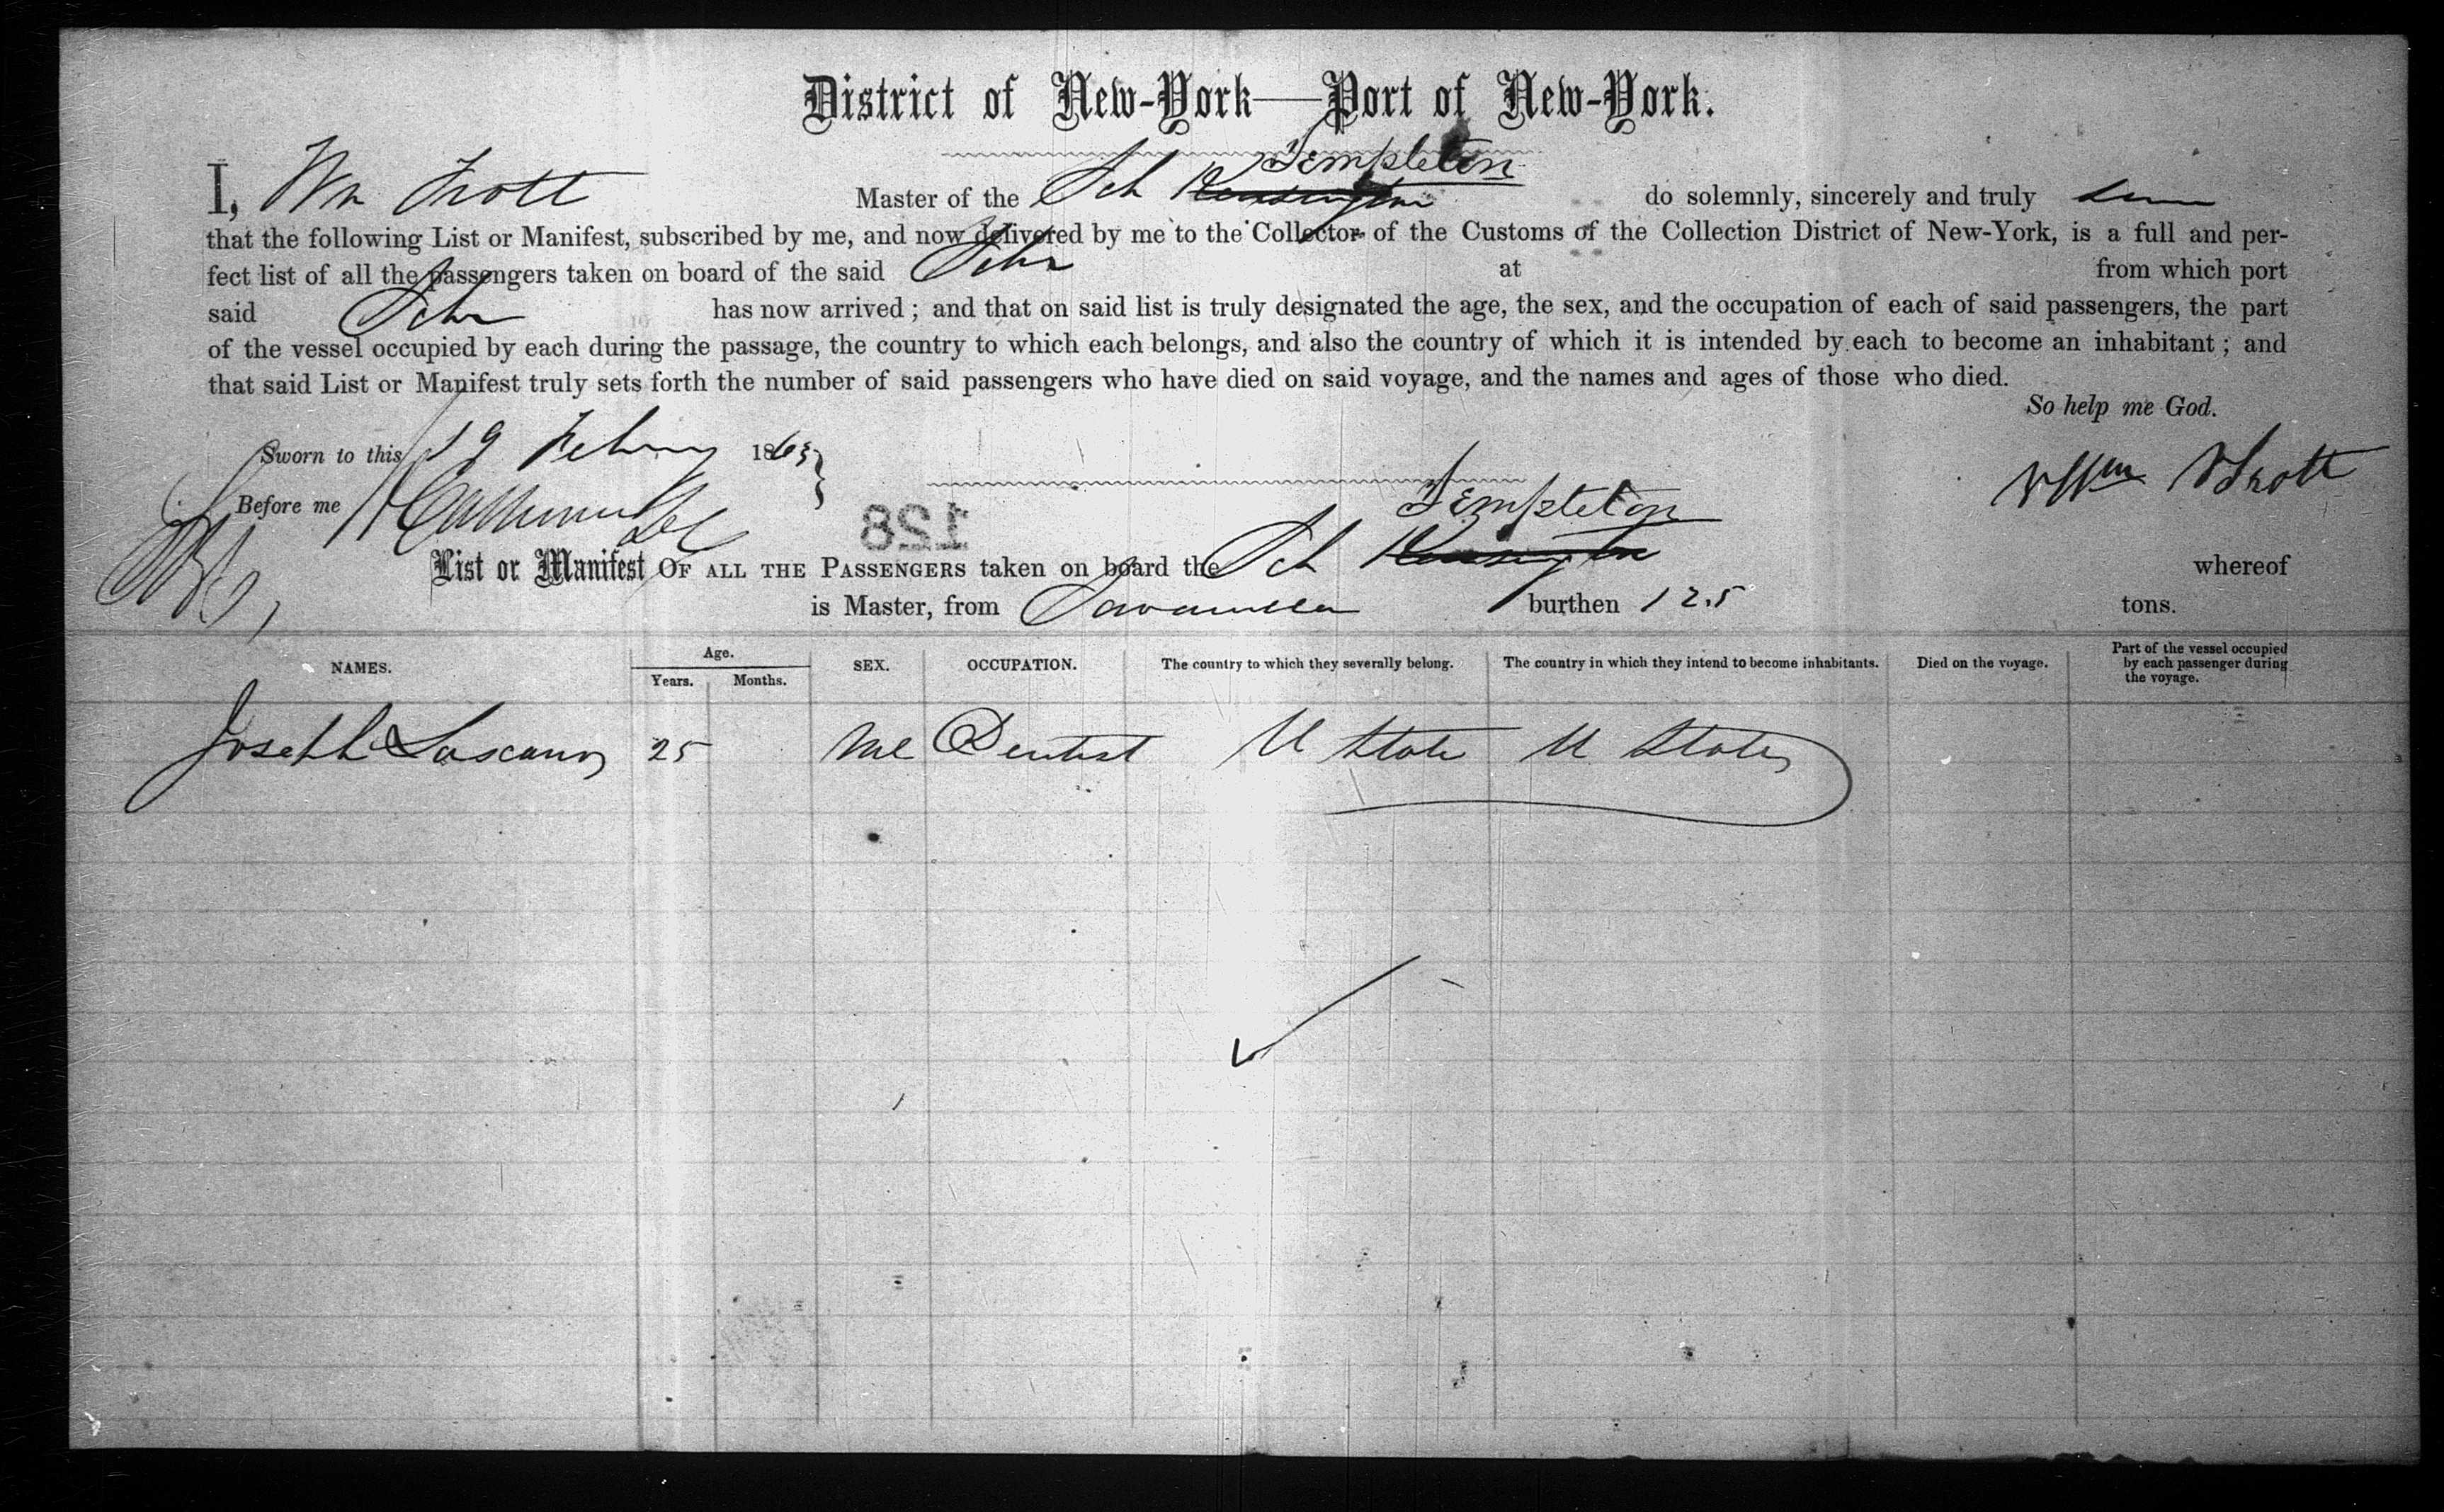 District of New-York—Port of New-York.
Templeton
I, Wm Trott Master of the Sch Kensington do solemnly, sincerely and truly
that the following List or Manifest, subscribed by me, and now delivered by me to the Collector of the Customs of the Collection District of New-York, is a full and per-
fect list of all the passengers taken on board of the said Schr at from which port
said Schr has now arrived; and that on said list is truly designated the age, the sex, and the occupation of each of said passengers, the part
of the vessel occupied by each during the passage, the country to which each belongs, and also the country of which it is intended by each to become an inhabitant; and
that said List or Manifest truly sets forth the number of said passengers who have died on said voyage, and the names and ages of those who died.
So help me God.
Sworn to this 19 Febury 1863
Wm Trott
Before me
128
Templeton
List or Manifest OF ALL THE PASSENGERS taken on board the Sch Kensington whereof
is Master, from Savanilla burthen 125 tons.
NAMES. Age. Years. Months. SEX. OCCUPATION. The country to which they severally belong. The country in which they intend to become inhabitants. Died on the voyage. Part of the vessel occupied by each passenger during the voyage.
Joseph Lascano 25 Mle Dentist U State U States